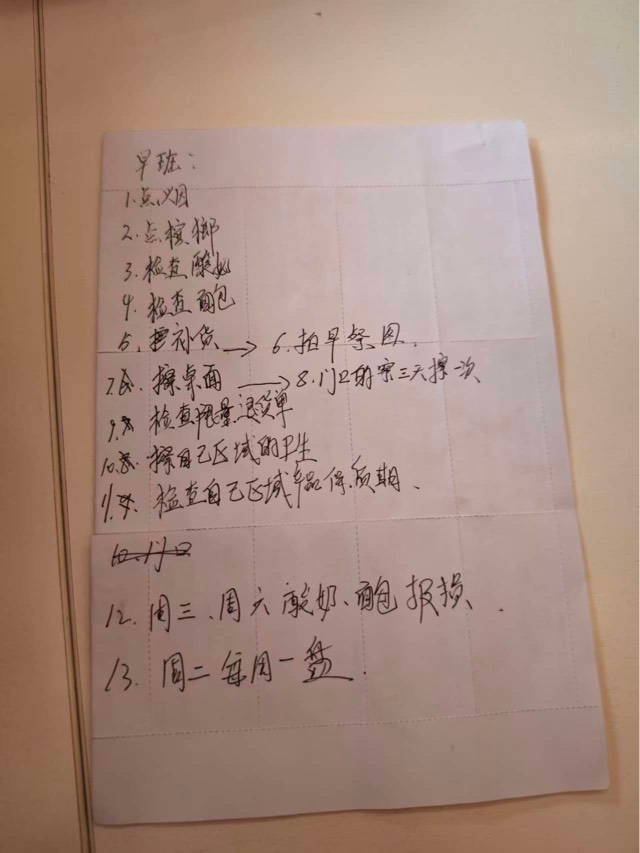 早班：
1.点烟
2.点槟榔
3.检查酸奶
4.检查面包
5.补货→6.拍早祭图.
7.擦桌面→8.门口的 三天擦一次
9.检查 退货单
10.擦自己区域的卫生
11.检查自己区域产品保质期、
12.周三、周六酸奶、面包报损.
13.周二每周一盘.